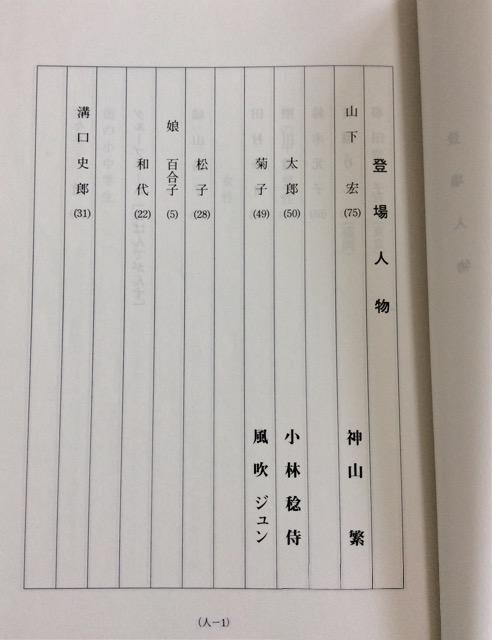 登場人物
山下 宏 (75) 神山 繁
太郎 (50) 小林稔侍
菊子 (49) 風吹ジュン
松子 (28)
娘 百合子 (5)
和代 (22)
溝口史郎 (31)
(人－1)
登場人物